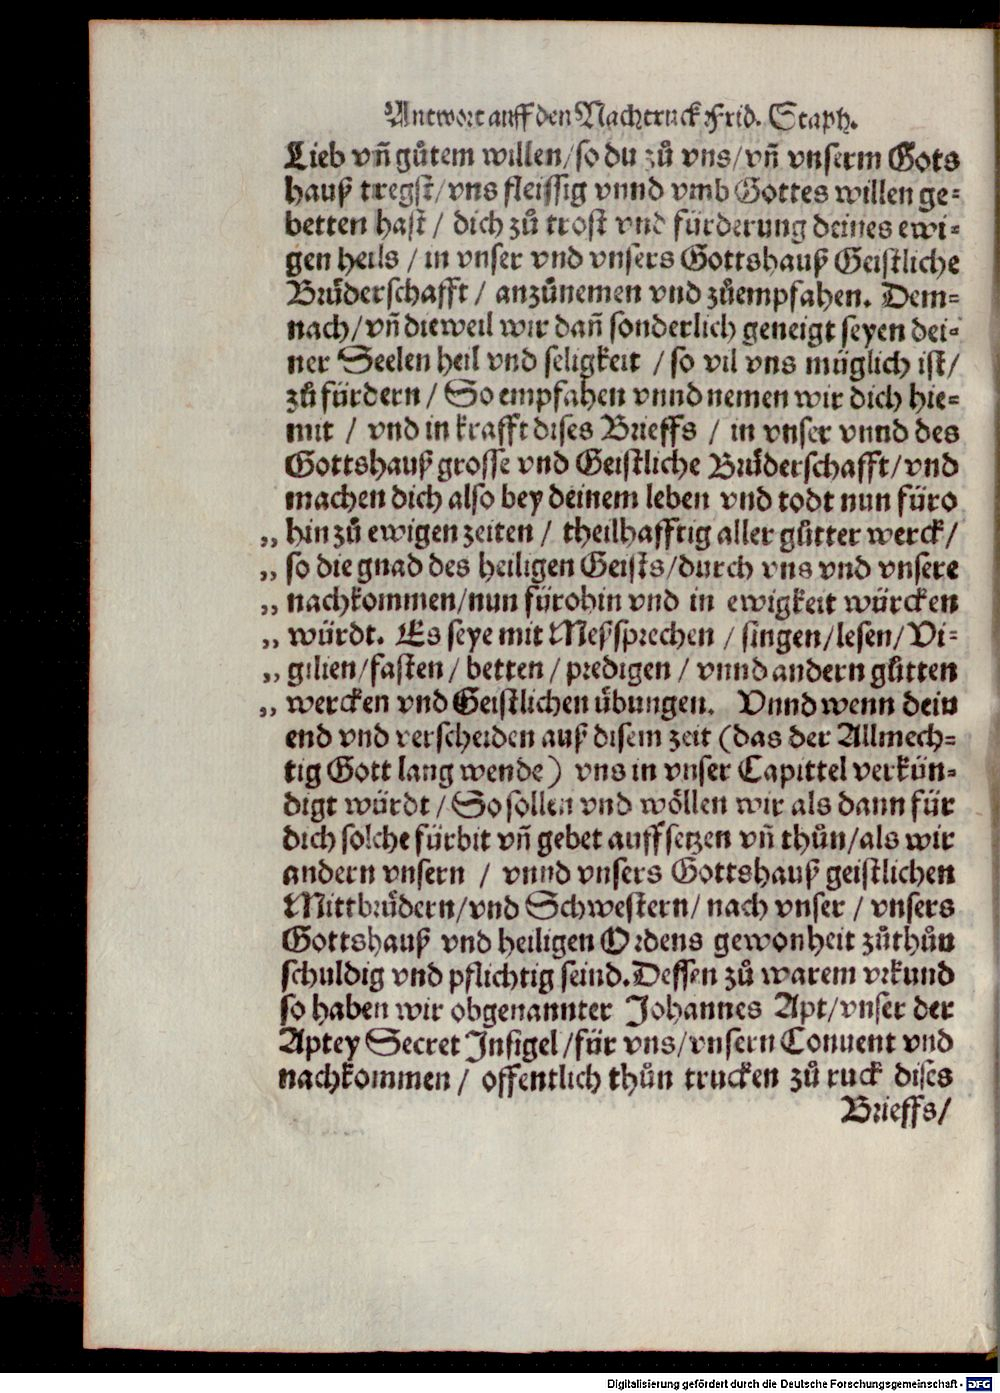 Antwort auff den Nachtruck Frid. Staph.
Lieb vñ gůtem willen/so du zů vns/vñ vnserm Gots
hauß tregst/vns fleissig vnnd vmb Gottes willen ge⸗
betten hast / dich zů trost vnd fürderung deines ewi⸗
gen heils / in vnser vnd vnsers Gottshauß Geistliche
Brůderschafft / anzůnemen vnd zůempfahen. Dem⸗
nach/vñ dieweil wir dañ sonderlich geneigt seyen dei⸗
ner Seelen heil vnd seligkeit /so vil vns müglich ist/
zů fürdern / So empfahen vnnd nemen wir dich hie⸗
mit / vnd in krafft dises Brieffs / in vnser vnnd des
Gottshauß grosse vnd Geistliche Brůderschafft/vnd
machen dich also bey deinem leben vnd todt nun füro
„ hin zů ewigen zeiten / theilhafftig aller gůtter werck/
„ so die gnad des heiligen Geists/durch vns vnd vnsere
„ nachkommen/nun fürohin vnd in ewigkeit würcken
„ würdt. Es seye mit Meßsprechen / singen/lesen/Vi⸗
„ gilien/fasten/ betten / predigen / vnnd andern gůtten
„ wercken vnd Geistlichen übungen. Vnnd wenn dein
end vnd verscheiden auß disem zeit (das der Allmech⸗
tig Gott lang wende) vns in vnser Capittel verkün⸗
digt würdt /So sollen vnd wöllen wir als dann für
dich solche fürbit vñ gebet auffsetzen vñ thůn/als wir
andern vnsern / vnnd vnsers Gottshauß geistlichen
Mittbrůdern/vnd Schwestern/ nach vnser / vnsers
Gottshauß vnd heiligen Ordens gewonheit zůthůn
schuldig vnd pflichtig seind. Dessen zů warem vrkund
so haben wir obgenannter Johannes Apt/vnser der
Aptey Secret Insigel /für vns/vnsern Conuent vnd
nachkommen / offentlich thůn trucken zů ruck dises
Brieffs/
Digitalisierung gefördert durch die Deutsche Forschungsgemeinschaft - DFG